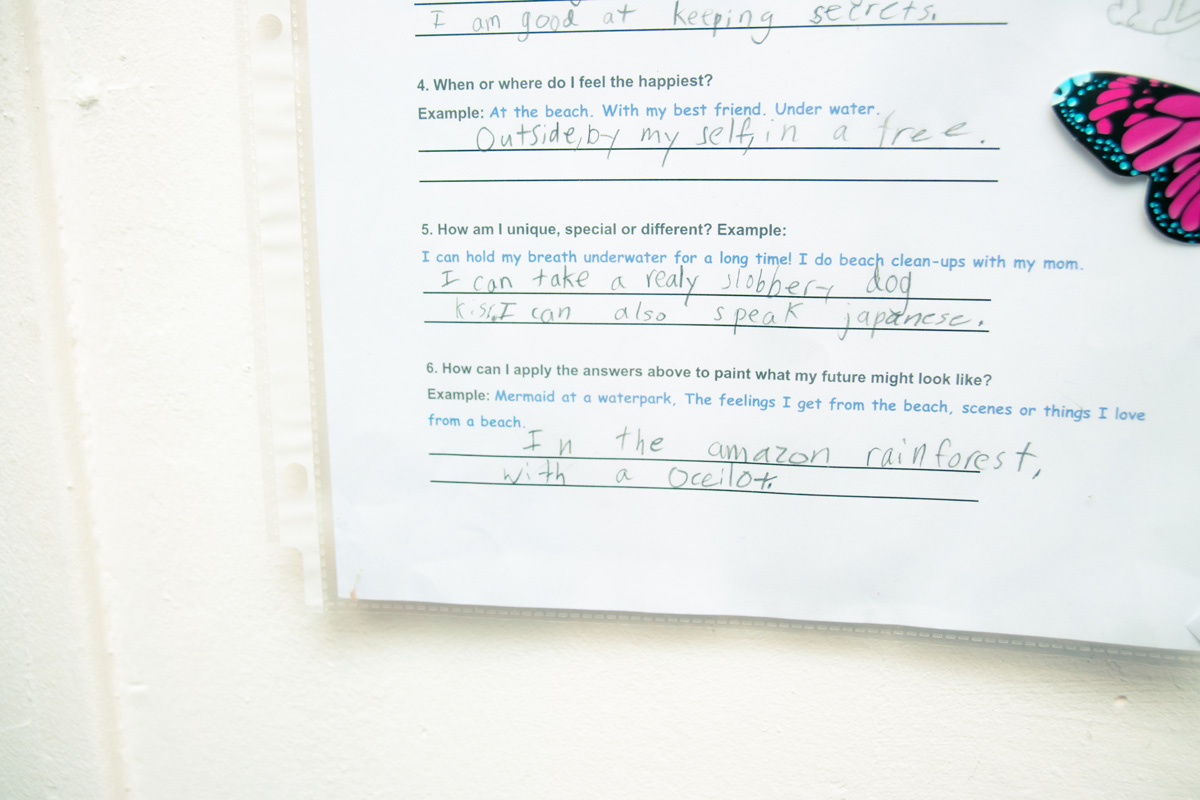 I am good at keeping secrets.
4. When or where do I feel the happiest?
Example: At the beach. With my best friend. Under water.
Outside, by my self, in a tree.
5. How am I unique, special or different? Example:
I can hold my breath underwater for a long time! I do beach clean-ups with my mom.
I can take a realy slobbery dog
kiss, I can also speak japanese.
6. How can I apply the answers above to paint what my future might look like?
Example: Mermaid at a waterpark, The feelings I get from the beach, scenes or things I love
from a beach.
In the amazon rainforest,
with a Oceilot.